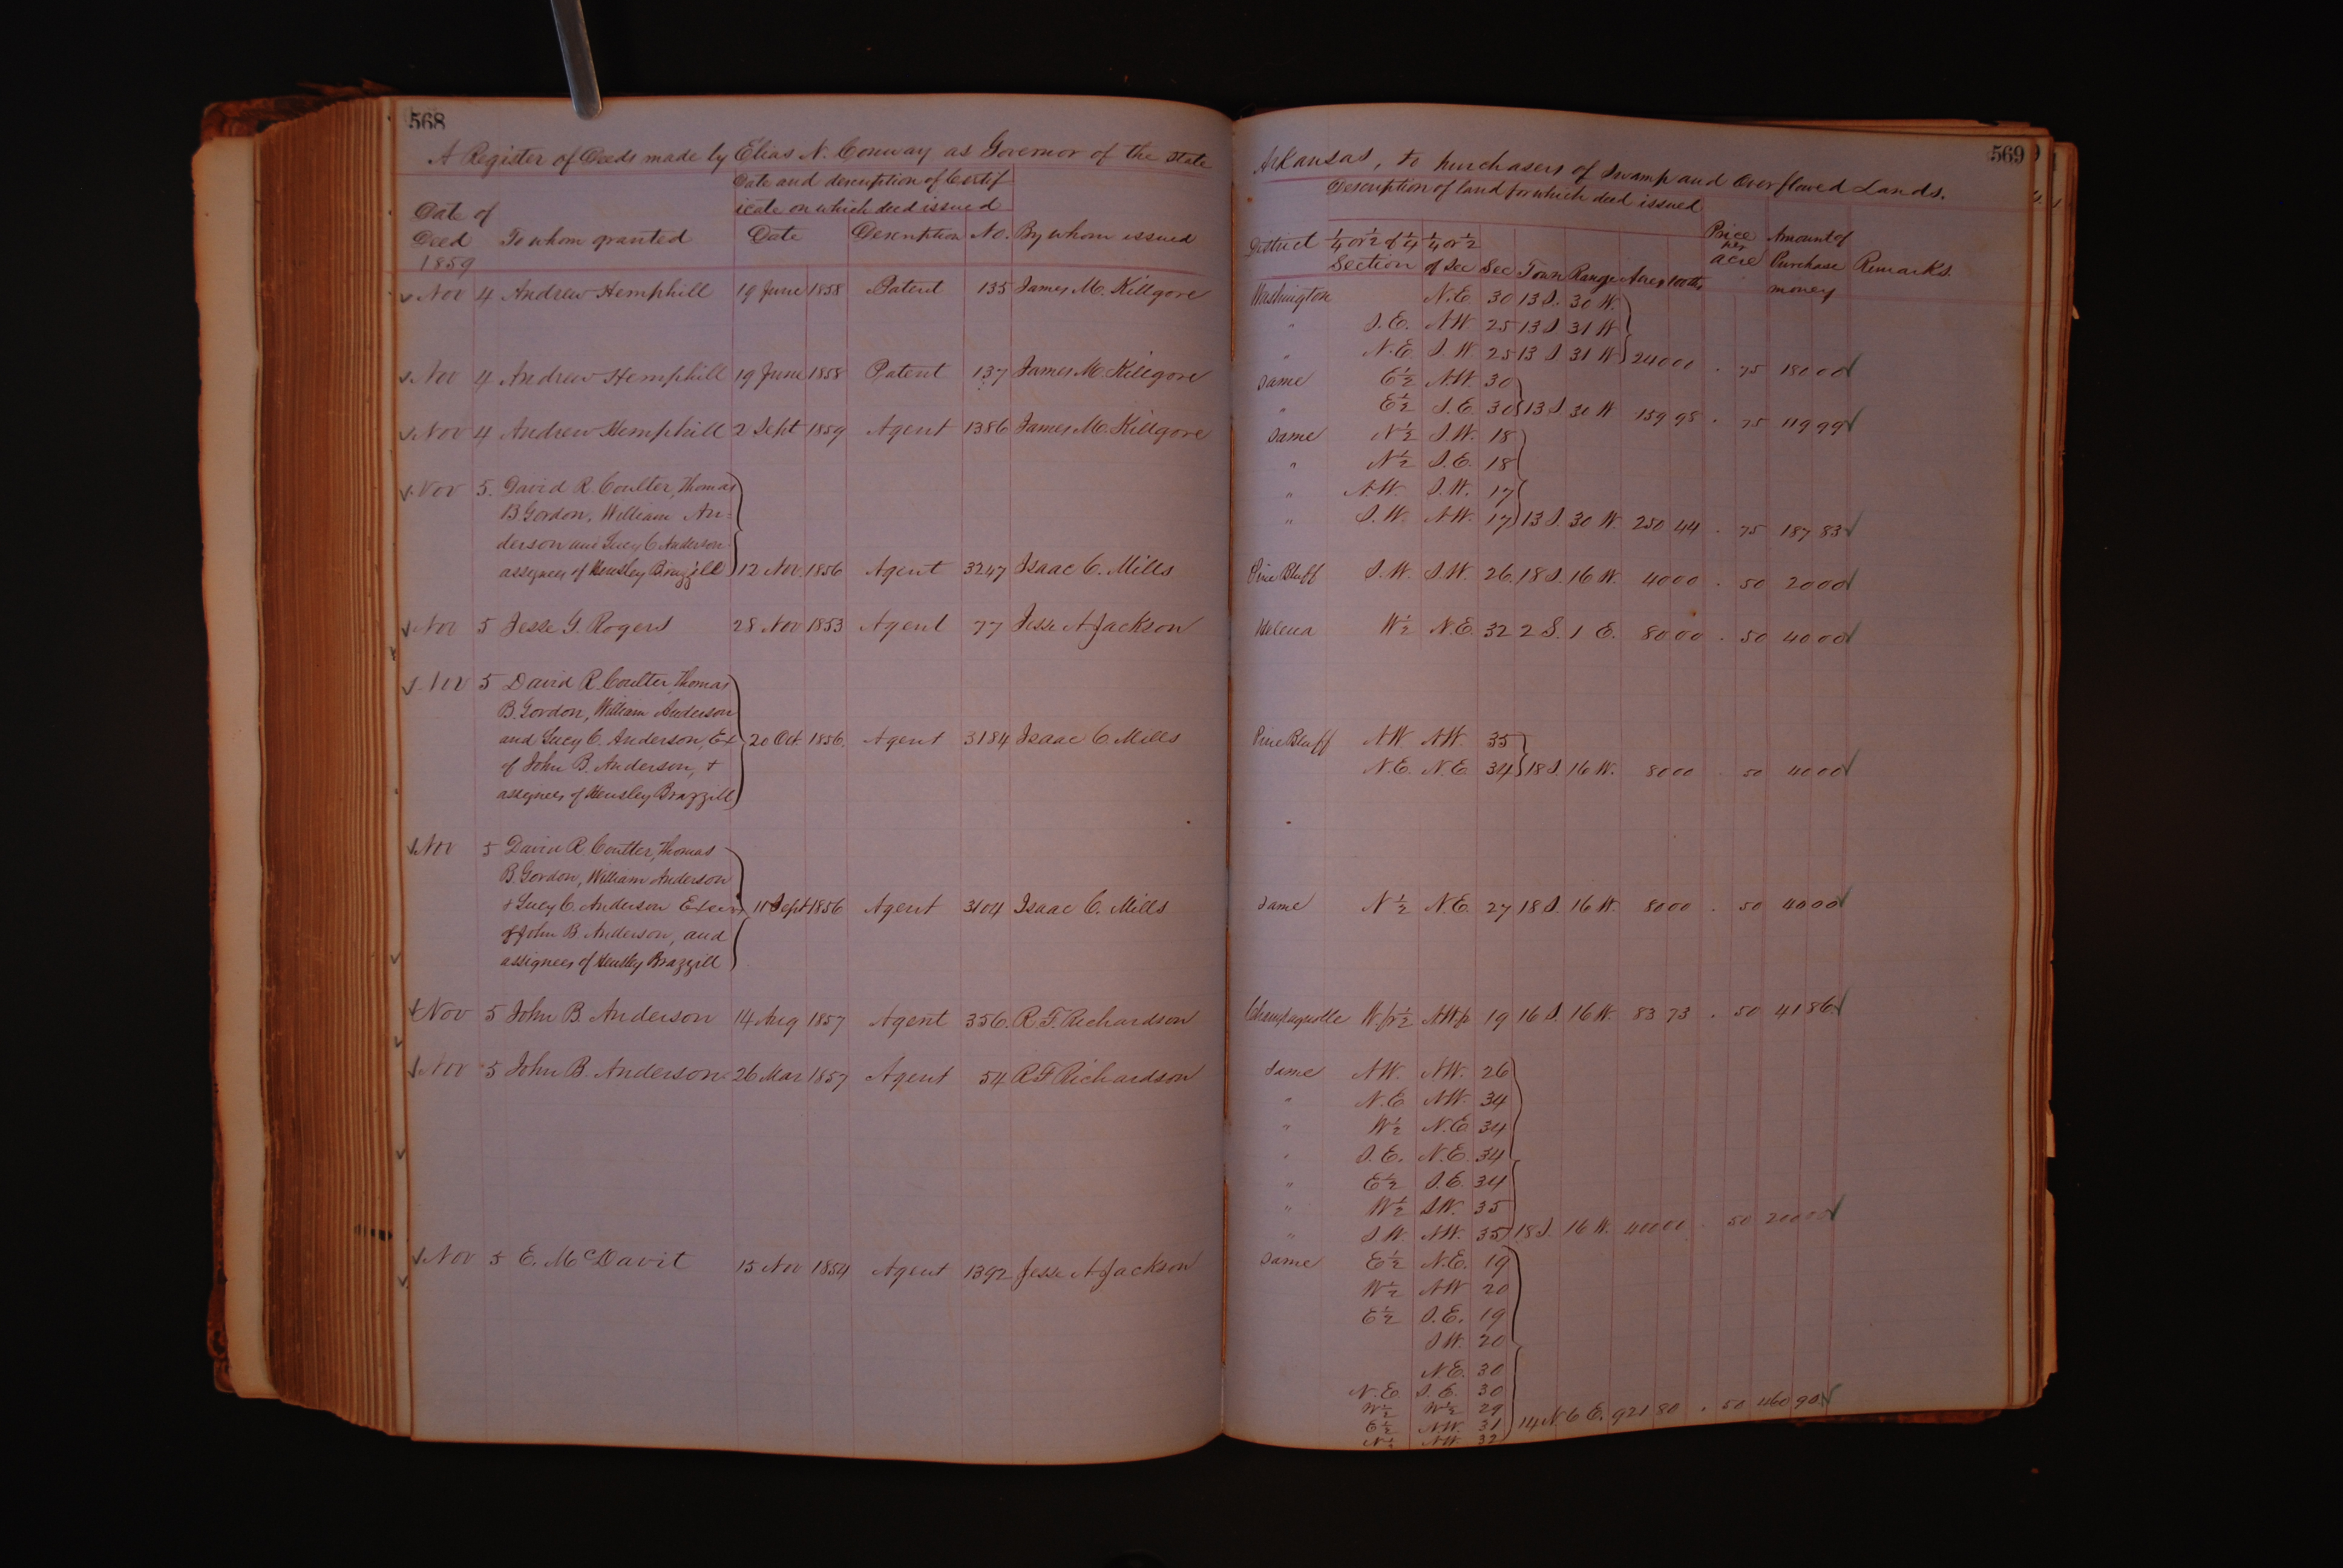 568
A Register of Deeds made by Elias N. Conway as Governor of the State
Date and description of Certif-
icate on which deed issued
Date of
Deed To whom granted Date Description No. By whom issued
1859
Nov 4 Andrew Hemphill 19 June 1858 Patent 135 James M. Killgore
Nov 4 Andrew Hemphill 19 June 1858 Patent 137 James M. Killgore
Nov 4 Andrew Hemphill 2 Sept 1859 Agent 1386 James M. Killgore
Nov 5. David R. Coulter, Thomas
B. Gordon, William An-
derson and Lucy C Anderson
assignees of Hensley Brazzill 12 Nov. 1856 Agent 3247 Isaac C. Mills
Nov 5 Jesse G. Rogers 28 Nov 1853 Agent 77 Jesse A Jackson
Nov 5 David R. Coulter, Thomas
B. Gordon, William Anderson
and Lucy C. Anderson, Ex 20 Oct 1856. Agent 3184 Isaac C Mills
of John B. Anderson, +
assignees of Hensley Brazzill
Nov 5 David R. Coulter, Thomas
B. Gordon, William Anderson
+ Lucy C. Anderson 11 Sept 1856 Agent 3104 Isaac C. Mills
of John B Anderson, and
assignees of Hensley Brazzill
Nov 5 John B. Anderson 14 Aug 1857 Agent 356. R. F. Richardson
Nov 5 John B. Anderson 26 Mar 1857 Agent 54 R F Richardson
Nov 5 E. McDavit 15 Nov 1854 Agent 1392 Jesse A Jackson
569
Arkansas, to purchasers of Swamp and Overflowed Lands.
Description of land for which deed issued
District ¼ or ½ of ¼ ¼ or ½ Price per Amount of
Section of Sec Sec Town Range Acres 100ths acre Purchase Remarks.
money
Washington N.E 30 13 S. 30 W.
" S.E. N W 25 13 S 31 W
" N.E. S.W. 25 13 S 31 W 240 00 . 75 180 00
Same E½ N.W. 30
" E½ S.E. 30 13 S. 30 W 159 98 . 75 119 99
Same N½ S.W. 18
" N½ S.E. 18
" N.W. S.W. 17
" S.W. N.W. 17 13 S. 30 W. 250 44 . 75 187 83
Pine Bluff S.W. S.W. 26. 18 S. 16 W. 40 00 . 50 20 00
Helena W½ N.E. 32 2 S. 1 E. 80 00 . 50 40 00
Pine Bluff N.W. N.W. 35
N.E. N.E 34 18 S. 16 W. 80 00 . 50 40 00
Same N½ N.E. 27 18 S. 16 W. 80 00 . 50 40 00
Champagnolle W fr ½ N W fr 19 16 S. 16 W. 83 73 . 50 41 86
Same N.W. N.W. 26
" N.E N.W. 34
" W½ N.E 34
" S.E. N.E. 34
" E½ S.E. 34
" W½ S.W. 35
" S.W. N.W. 35 18 S. 16 W. 400 00 . 50 200 00
Same E½ N.E. 19
W½ N.W 20
E½ S.E. 19
S.W. 20
N.E. 30
N.E. S.E. 30
W½ W½ 29
E½ N.W. 31 14 N 6 E. 921 80 . 50 460 90
N½ N.W 32